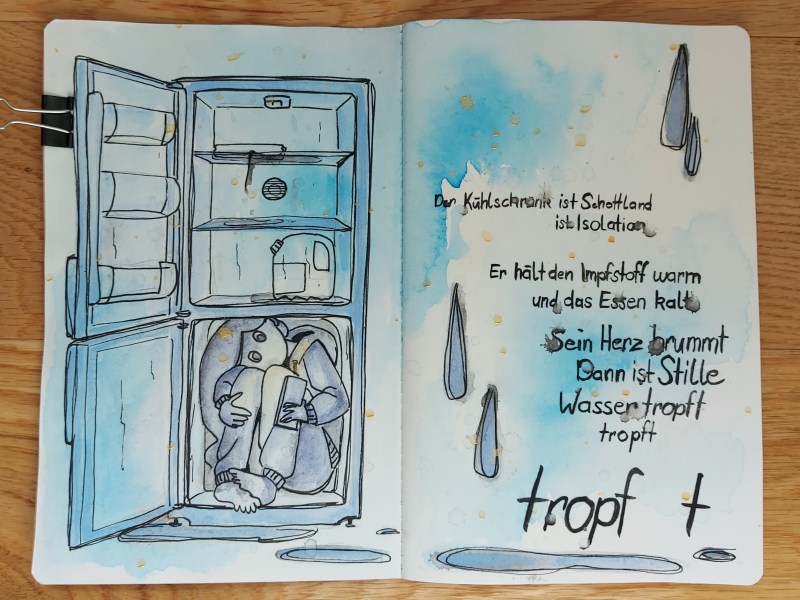 Der Kühlschrank ist Schottland
ist Isolation
Er hält den Impfstoff warm
und das Essen kalt
Sein Herz brummt
Dann ist Stille
Wasser tropft
tropft
tropf t